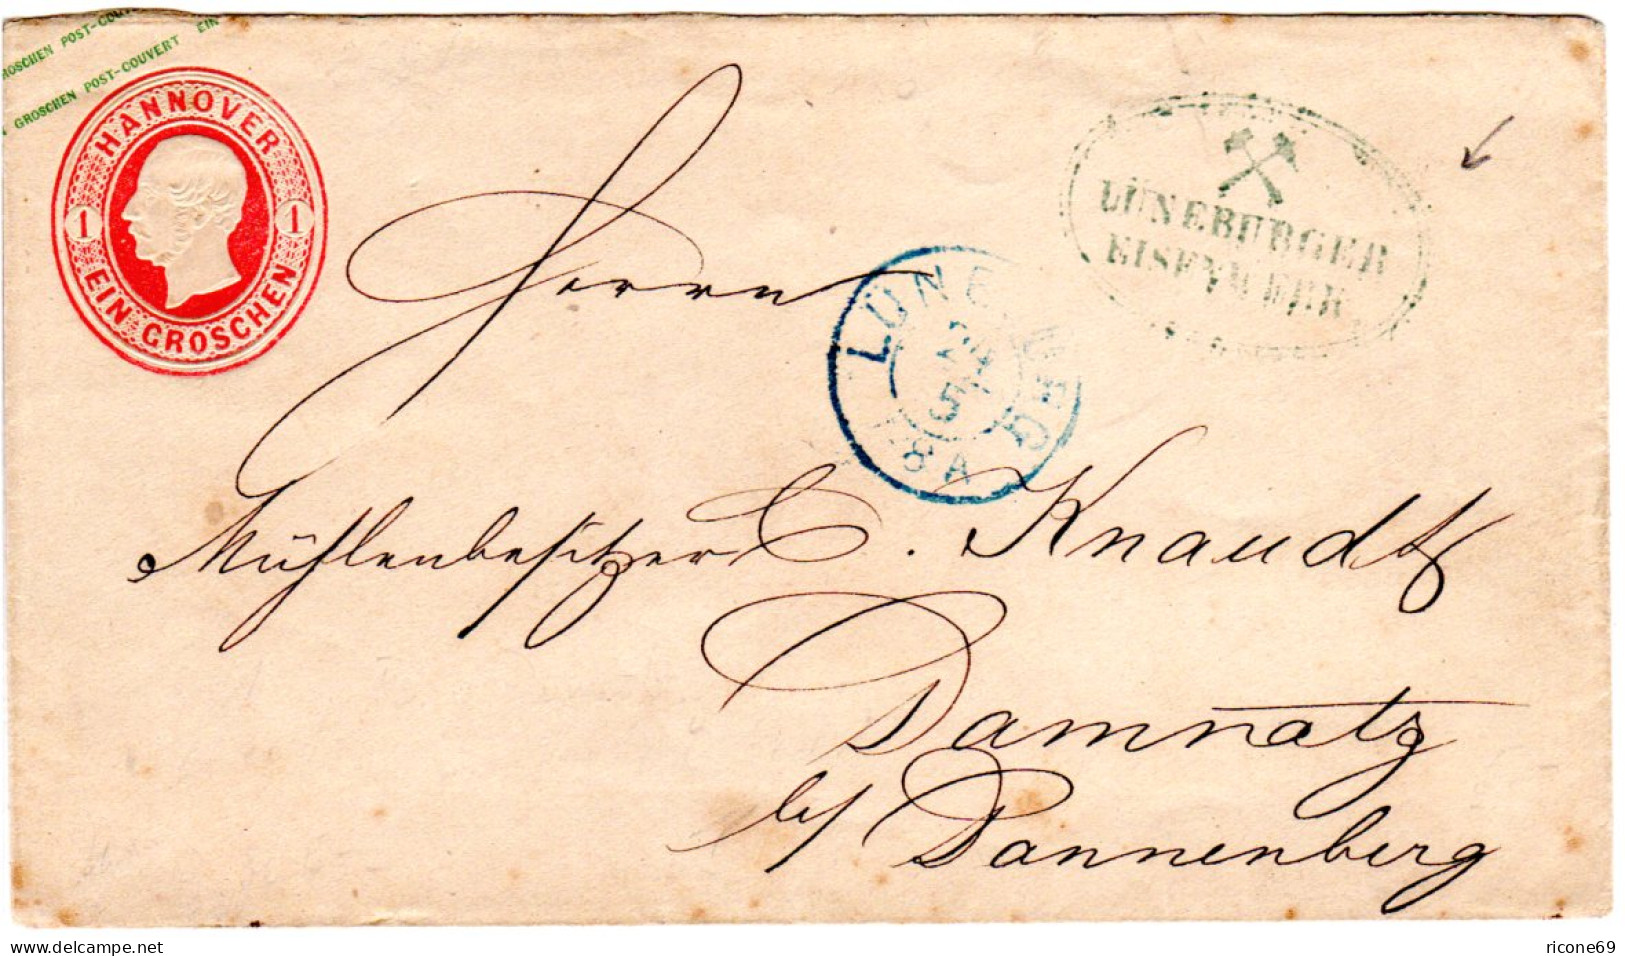 GROSCHEN POST-COUVERT
GROSCHEN POST-COUVERT EIN
HANNOVER
1 1
EIN GROSCHEN
LÜNEBURGER
EISENWERK
LÜNEBURG
5
8 A
Herrn
Mühlenbesitzer C. Knaudt
Damnatz
b/ Dannenberg
www.delcampe.net
ricone69